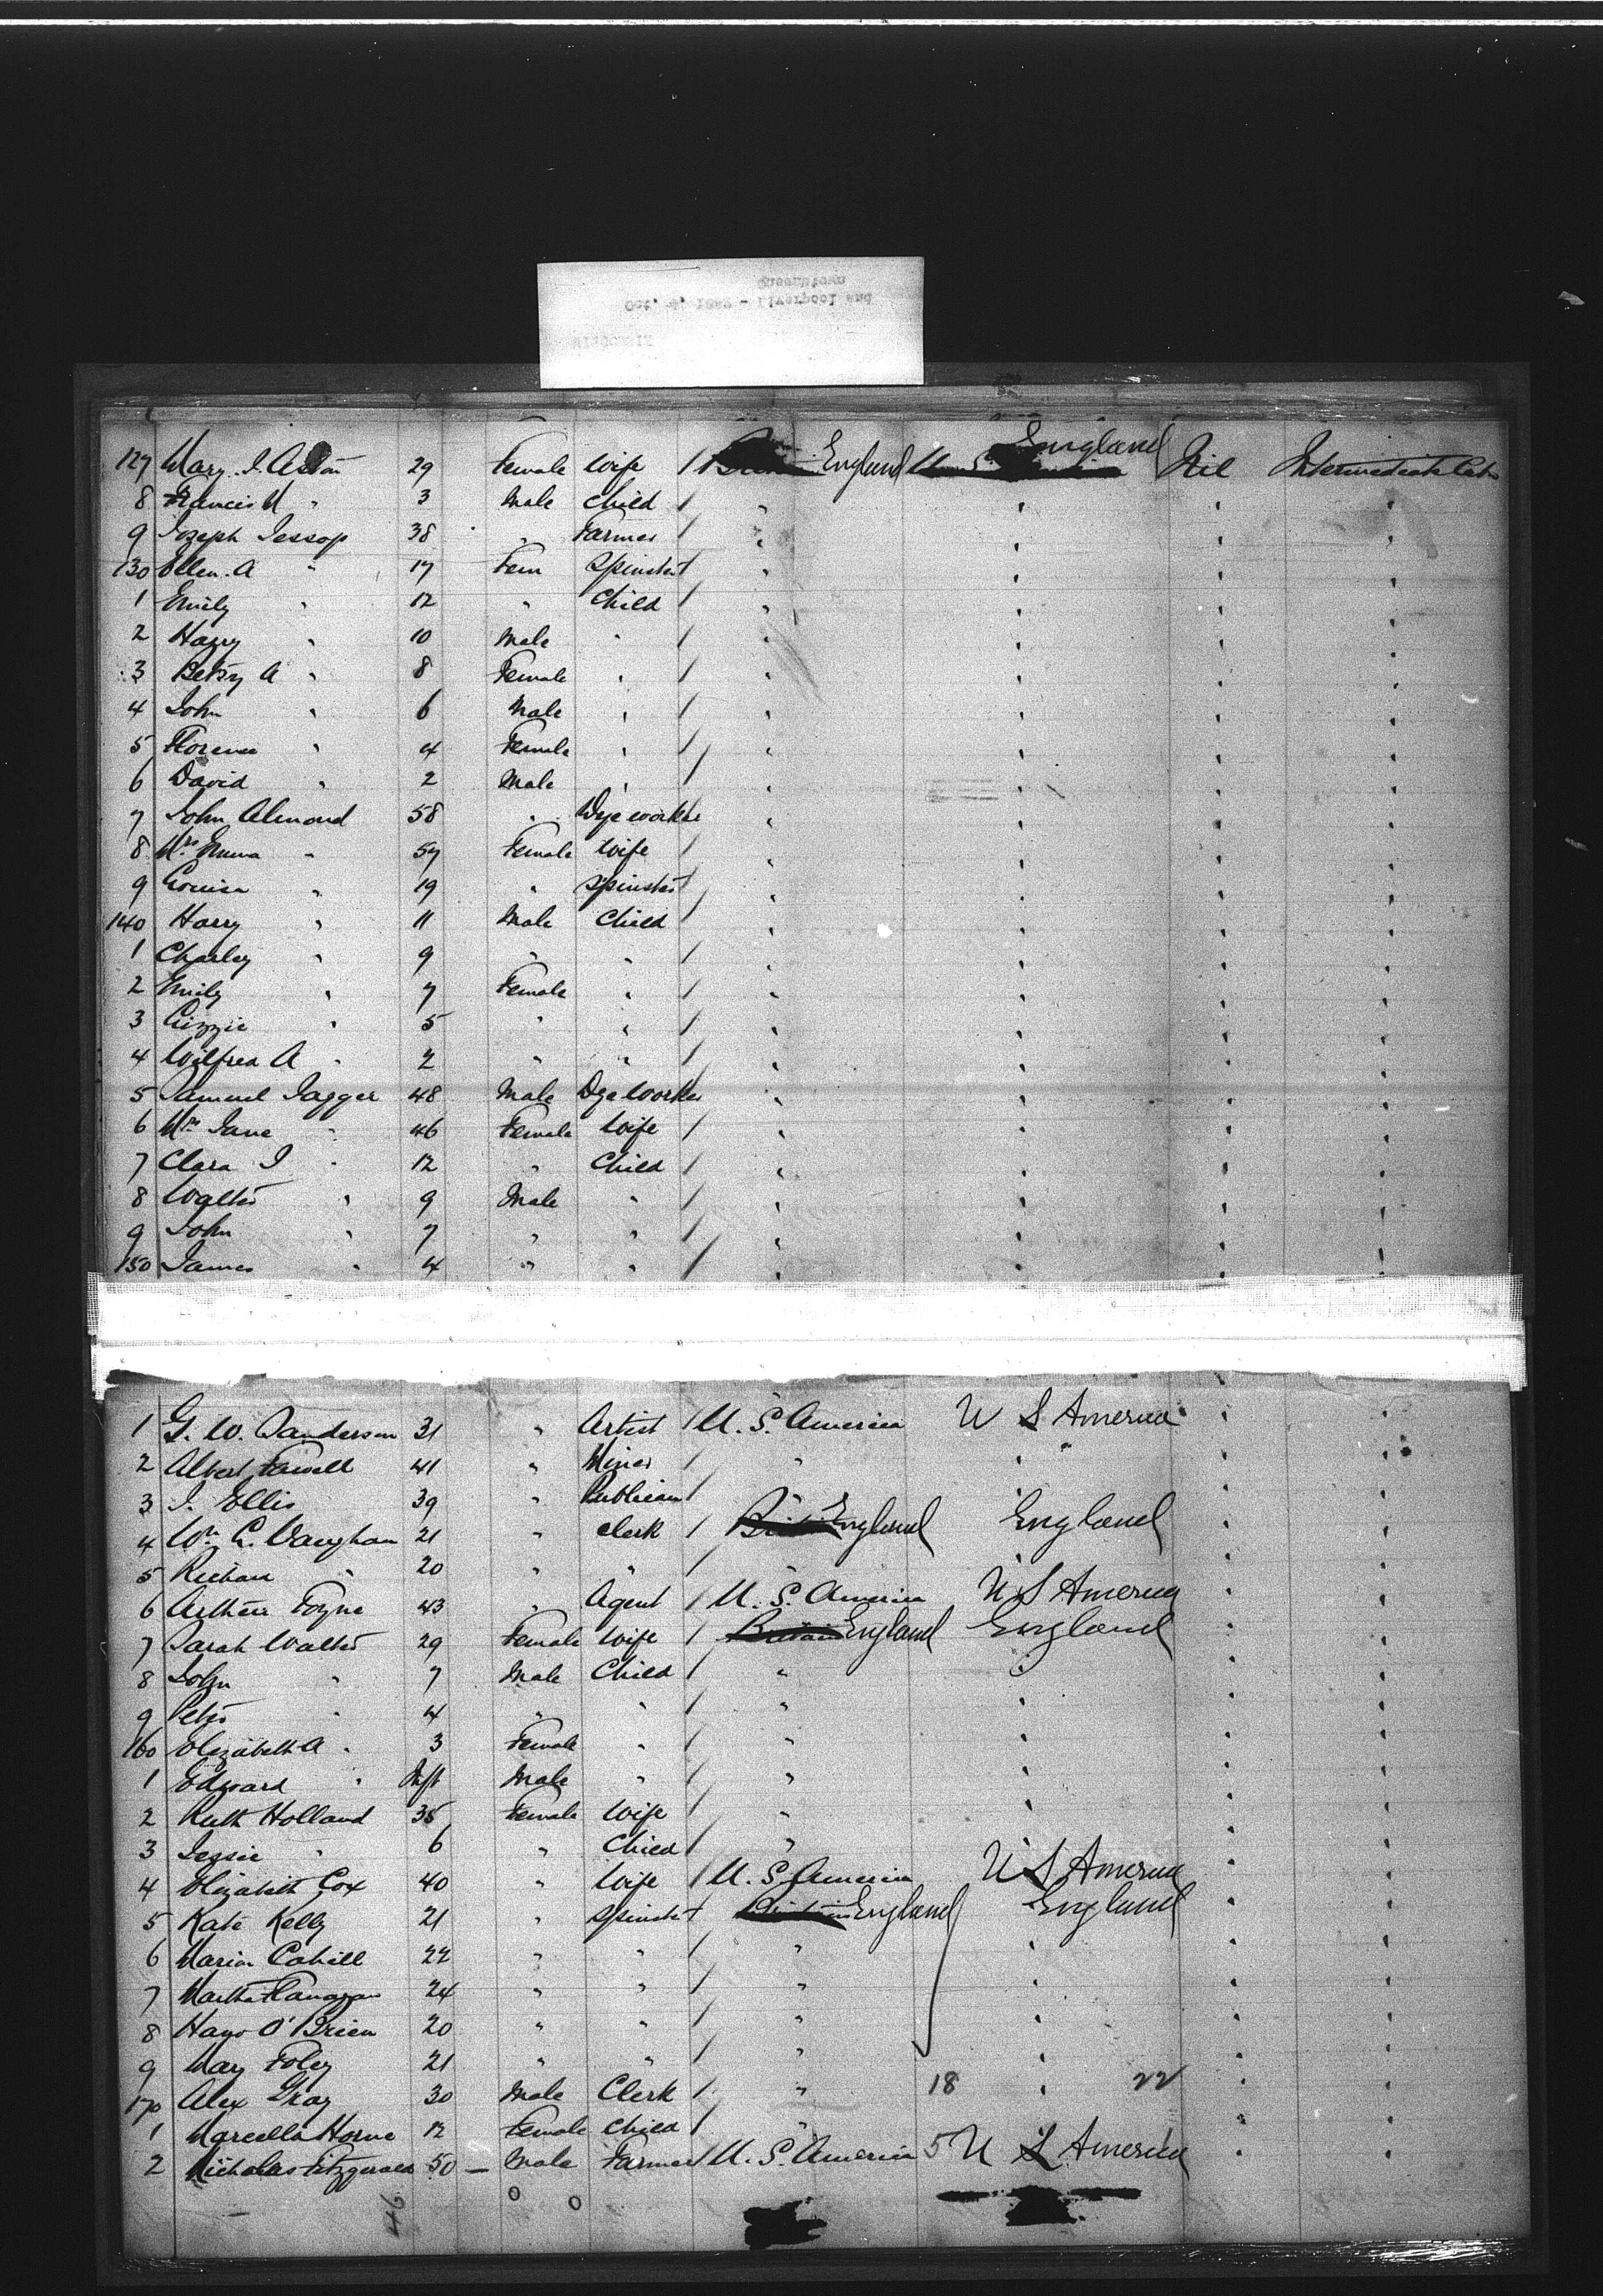 Queenstown
Oct. 4, 1882 - Liverpool and
127 Mary J. Aston 29 Female Wife / England England Nil Intermediate Cabn
8 Francis M " 3 Male Child / " " " "
9 Joseph Jessop 38 " Farmer / " " " "
130 Ellen. A " 17 Fem Spinster / " " " "
1 Emily " 12 " Child / " " " "
2 Harry " 10 Male " / " " " "
3 Betsy A " 8 Female " / " " " "
4 John " 6 Male " / " " " "
5 Florence " 4 Female " / " " " "
6 David " 2 Male " / " " " "
7 John Almond 58 " Dye worker " " " "
8 Mrs Emma " 57 Female Wife / " " " "
9 Louisa " 19 " Spinster / " " " "
140 Harry " 11 Male Child / " " " "
1 Charley " 9 " " / " " " "
2 Emily " 7 Female " / " " " "
3 Lizzie " 5 " " / " " " "
4 Wilfred A " 2 " " / " " " "
5 Samuel Jagger 48 Male Dye Worker " " " "
6 Mrs Jane " 46 Female Wife / " " " "
7 Clara J " 12 " Child / " " " "
8 Walter " 9 Male " / " " " "
9 John " 7 " " / " " " "
150 James " 4 " " / " " " "
1 G. W. Sanderson 31 " Artist / U. S. America U S America " "
2 Albert Fawell 41 " Miner / " " " "
3 J. Ellis 39 " Publican / " " " "
4 Wm C. Vaughan 21 " Clerk / Britain England England " "
5 Richard " 20 " " / " " " "
6 Arthur Toyne 43 " Agent / U. S. America U S America " "
7 Sarah Walter 29 Female Wife / Britain England England " "
8 John " 7 Male Child / " " " "
9 Peter " 4 " " / " " " "
160 Elizabeth A " 3 Female " / " " " "
1 Edward " Inft Male " / " " " "
2 Ruth Holland 35 Female Wife / " " " "
3 Jessie " 6 " Child / " " " "
4 Elizabeth Cox 40 " Wife / U. S. America U S America " "
5 Kate Kelly 21 " Spinster / Britain England England " "
6 Maria Cahill 22 " " / " " " "
7 Martha Flanagan 24 " " / " " " "
8 O'Brien 20 " " / " " " "
9 Mary Foley 21 " " / " " " "
170 Alex Gray 30 Male Clerk / " 18 " 22 " "
1 Marcella Horne 12 Female Child / " " "
2 Nicholas Fitzgerald 50 — Male Farmer / U. S. America 5 U S America " "
46